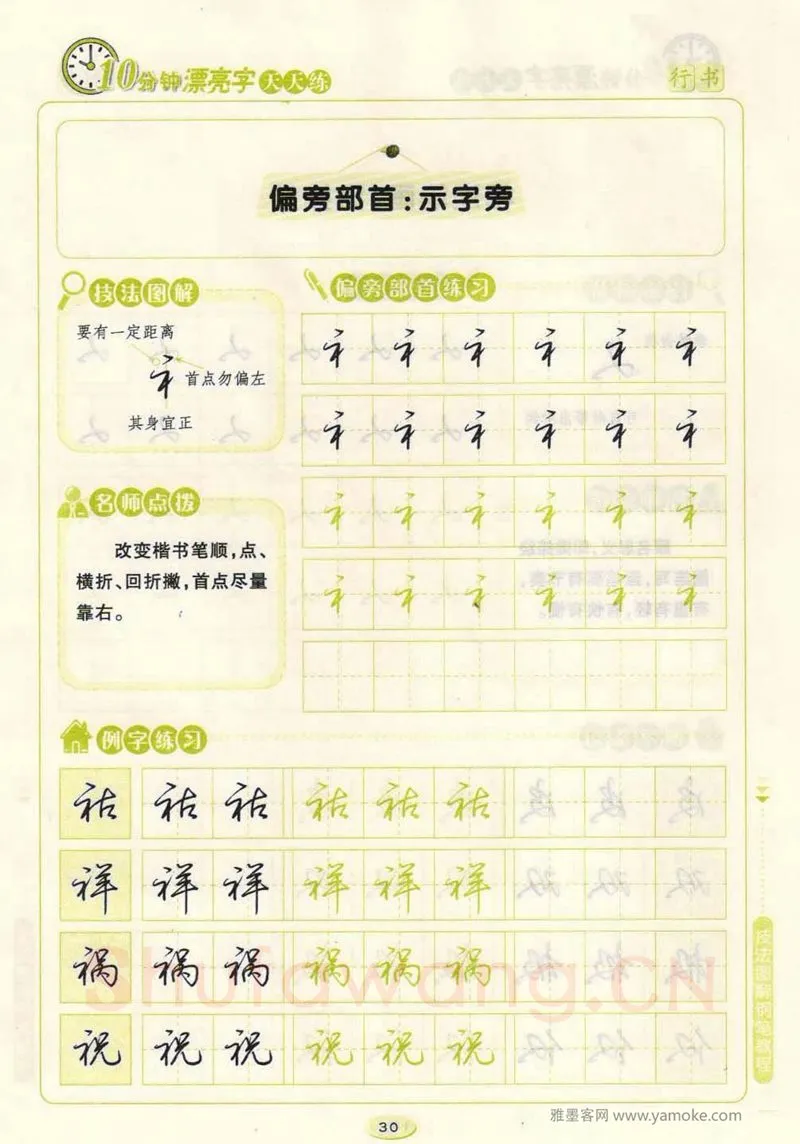 10分钟漂亮字天天练
行书
偏旁部首:示字旁
技法图解
要有一定距离
礻
首点勿偏左
其身宜正
偏旁部首练习
礻 礻 礻 礻 礻 礻
礻 礻 礻 礻 礻 礻
礻 礻 礻 礻 礻 礻
礻 礻 礻 礻 礻 礻
名师点拨
改变楷书笔顺,点、
横折、回折撇,首点尽量
靠右。
例字练习
祜 祜 祜 祜 祜 祜
祥 祥 祥 祥 祥 祥
祸 祸 祸 祸 祸 祸
祝 祝 祝 祝 祝 祝
Shufawang.CN
技法图解钢笔教程
30
雅墨客网 www.yamoke.com